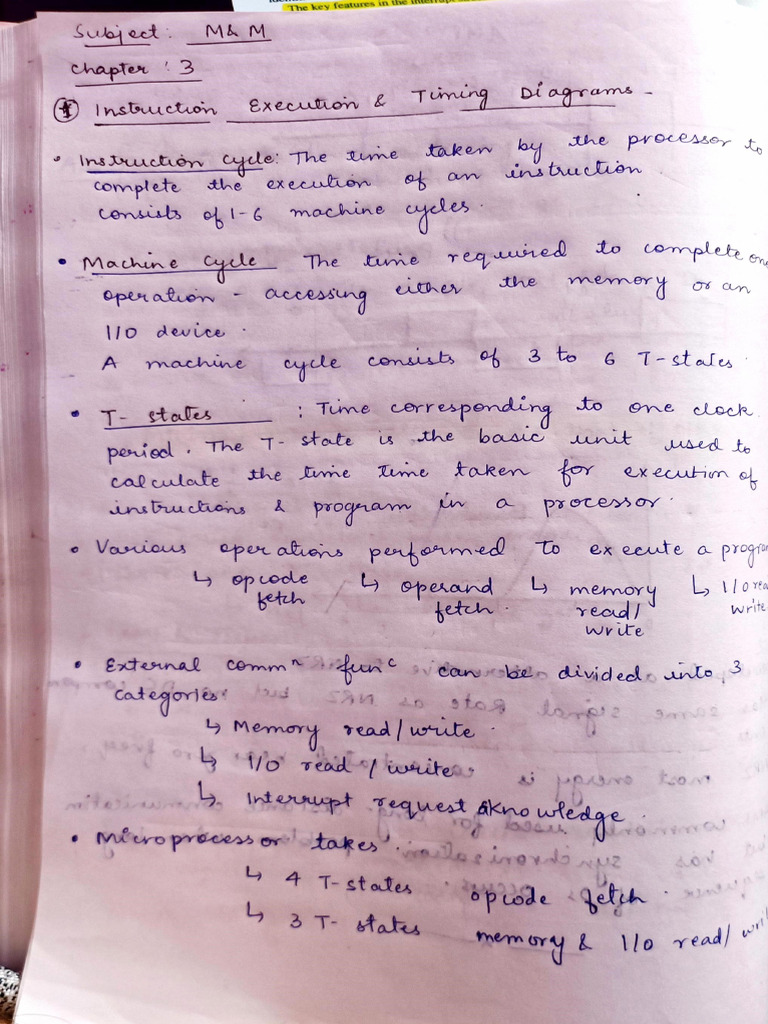 The key features in the interrupt
Subject: M & M
Chapter : 3
① Instruction Execution & Timing Diagrams -
• Instruction cycle: The time taken by the processor to
complete the execution of an instruction
consists of 1-6 machine cycles.
• Machine Cycle The time required to complete one
operation - accessing either the memory or an
I/O device.
A machine cycle consists of 3 to 6 T-states.
• T- states : Time corresponding to one clock
period. The T-state is the basic unit used to
calculate the time time taken for execution of
instructions & program in a processor.
• Various operations performed to execute a program
↳ opcode ↳ operand ↳ memory ↳ I/O read
fetch fetch. read/ write
write
• External commⁿ funᶜ can be divided into 3
categories:
↳ Memory read/write.
↳ I/O read / write
↳ Interrupt request aknowledge.
• Microprocessor takes.
↳ 4 T-states opcode fetch.
↳ 3 T- states memory & I/O read/ write